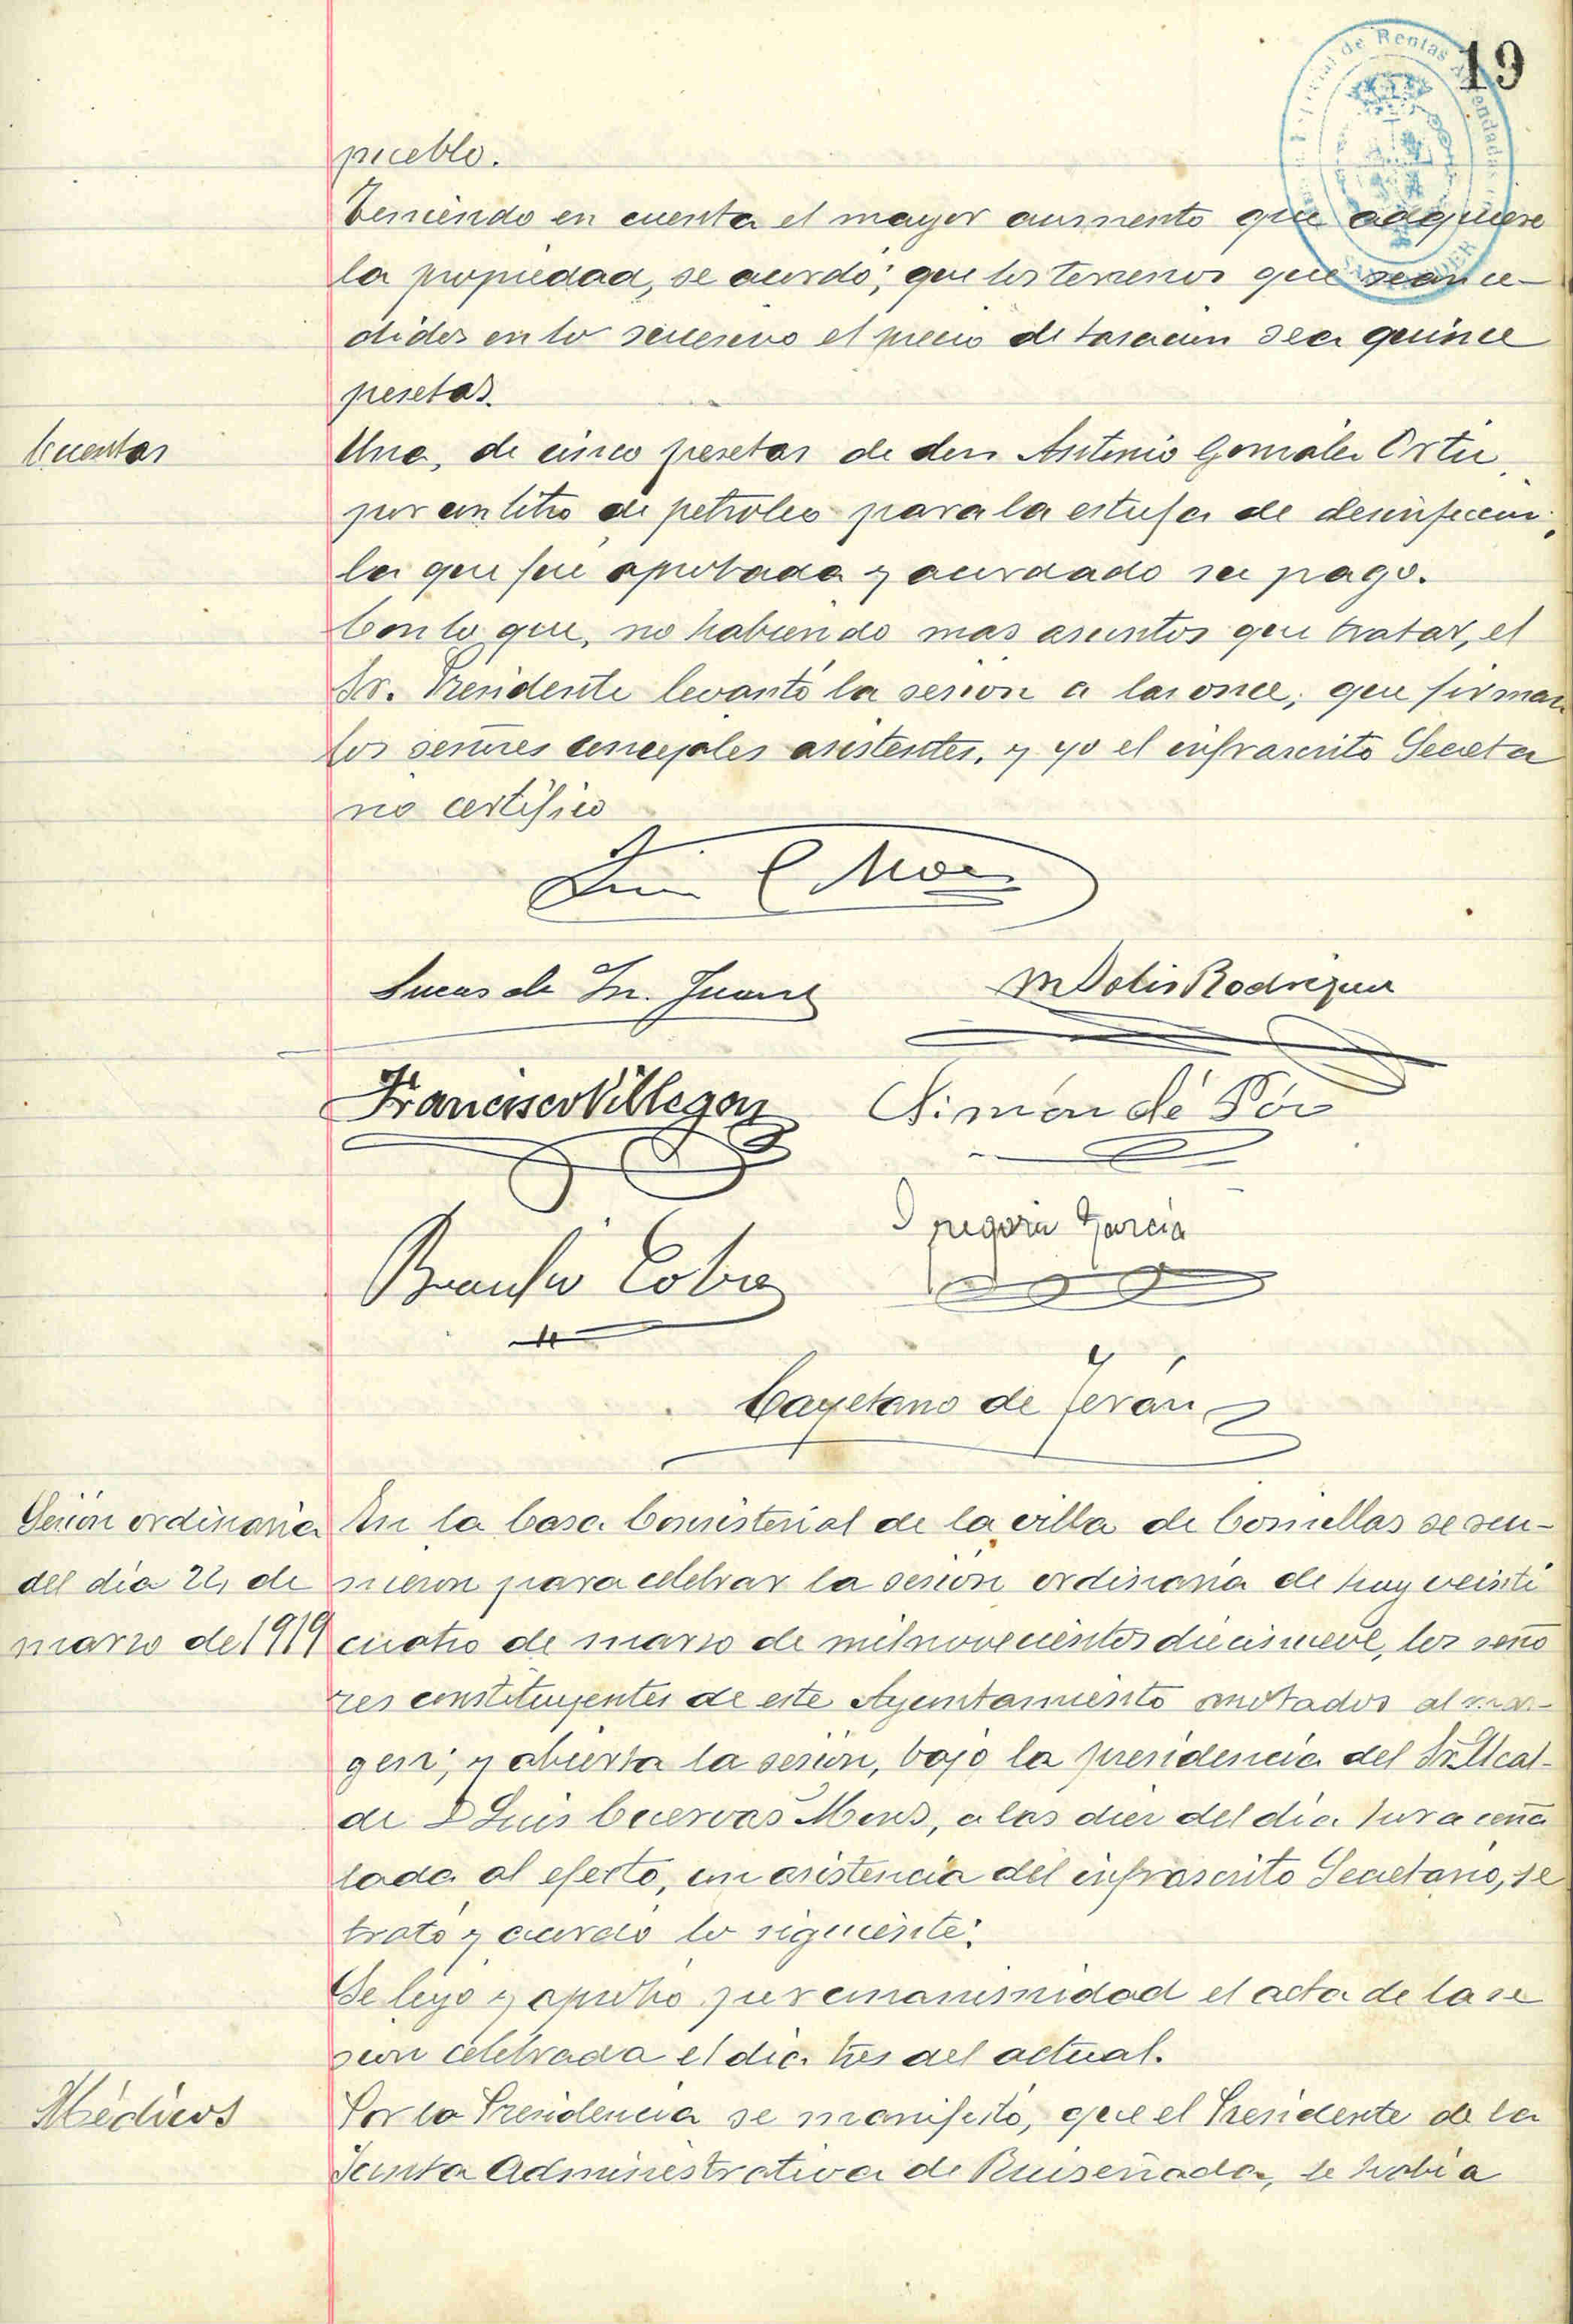 19
pueblo.
Teniendo en cuenta el mayor aumento que adquiere
la propiedad, se acordó; que los terrenos que sean ce-
didos en lo sucesivo el precio de tasacion sea quince
pesetas.
Cuentas
Una, de cinco pesetas de don Antonio González Ortiz
por un litro de petroleo para la estufa de desinfección;
la que fué aprobada y acordado su pago.
Con lo que, no habiendo mas asuntos que tratar, el
Sr. Presidente levantó la sesion a las once; que firman
los señores concejales asistentes, y yo el infrascrito Secreta
rio certifico
Luis C Mons
Lucas de Sn. Juan
M Solis Rodriguez
Francisco Villegas
Simón de Pós
Gregorio Garcia
Braulio Cobo
Cayetano de Terán
Sesión ordinaria
del día 24 de
marzo de 1919
En la Casa Consistorial de la villa de Comillas se reu-
nieron para celebrar la sesión ordinaria de hoy veinti
cuatro de marzo de mil novecientos diecinueve, los seño
res constituyentes de este Ayuntamiento anotados al mar-
gen; y abierta la sesión, bajo la presidencia del Sr. Alcal-
de D Luis Cuervas Mons, a las diez del día hora ceña
lada al efecto, con asistencia del infrascrito Secretario, se
trató y acordó lo siguiente:
Se leyó y aprobó por unanimidad el acta de la se
sion celebrada el día tres del actual.
Médicos
Por la Presidencia se manifestó, que el Presidente de la
Junta Administrativa de Ruiseñada, le había